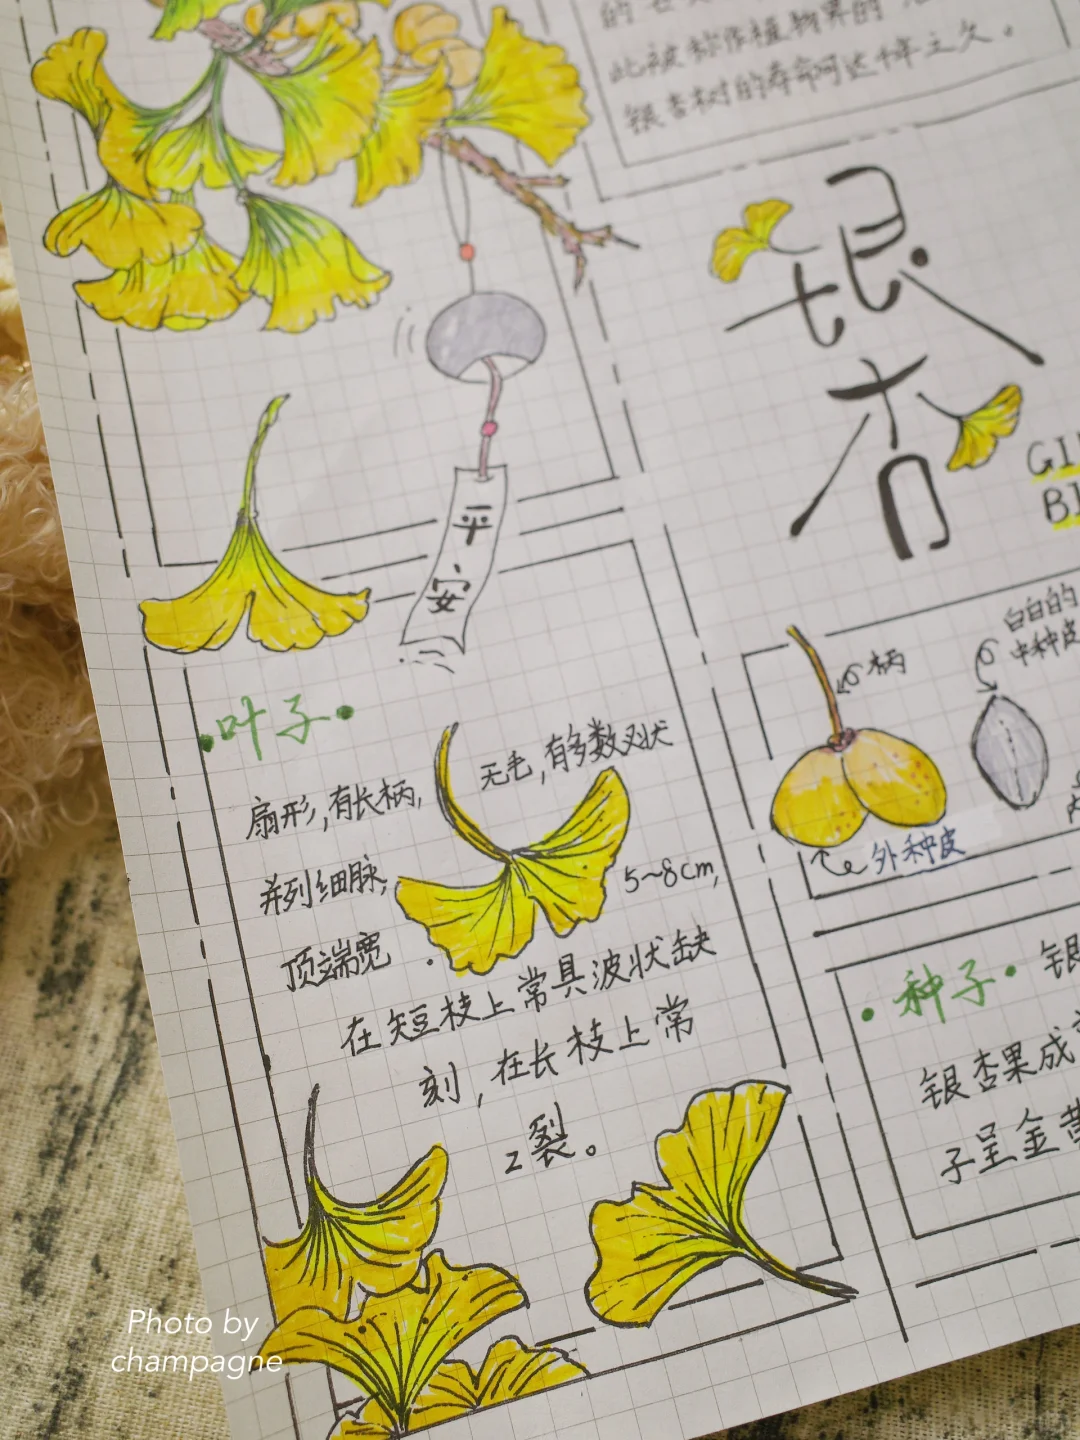 此被称作植物界的
银杏树的寿命可达千年之久。
银
杏
GI
BI
平
安
柄
白白的
中种皮
外种皮
·叶子·
扇形,有长柄,
无毛,有多数叉状
并列细脉,
5~8cm,
顶端宽
在短枝上常具波状缺
刻,在长枝上常
2裂。
·种子·
银
银杏果成
子呈金黄
Photo by
champagne